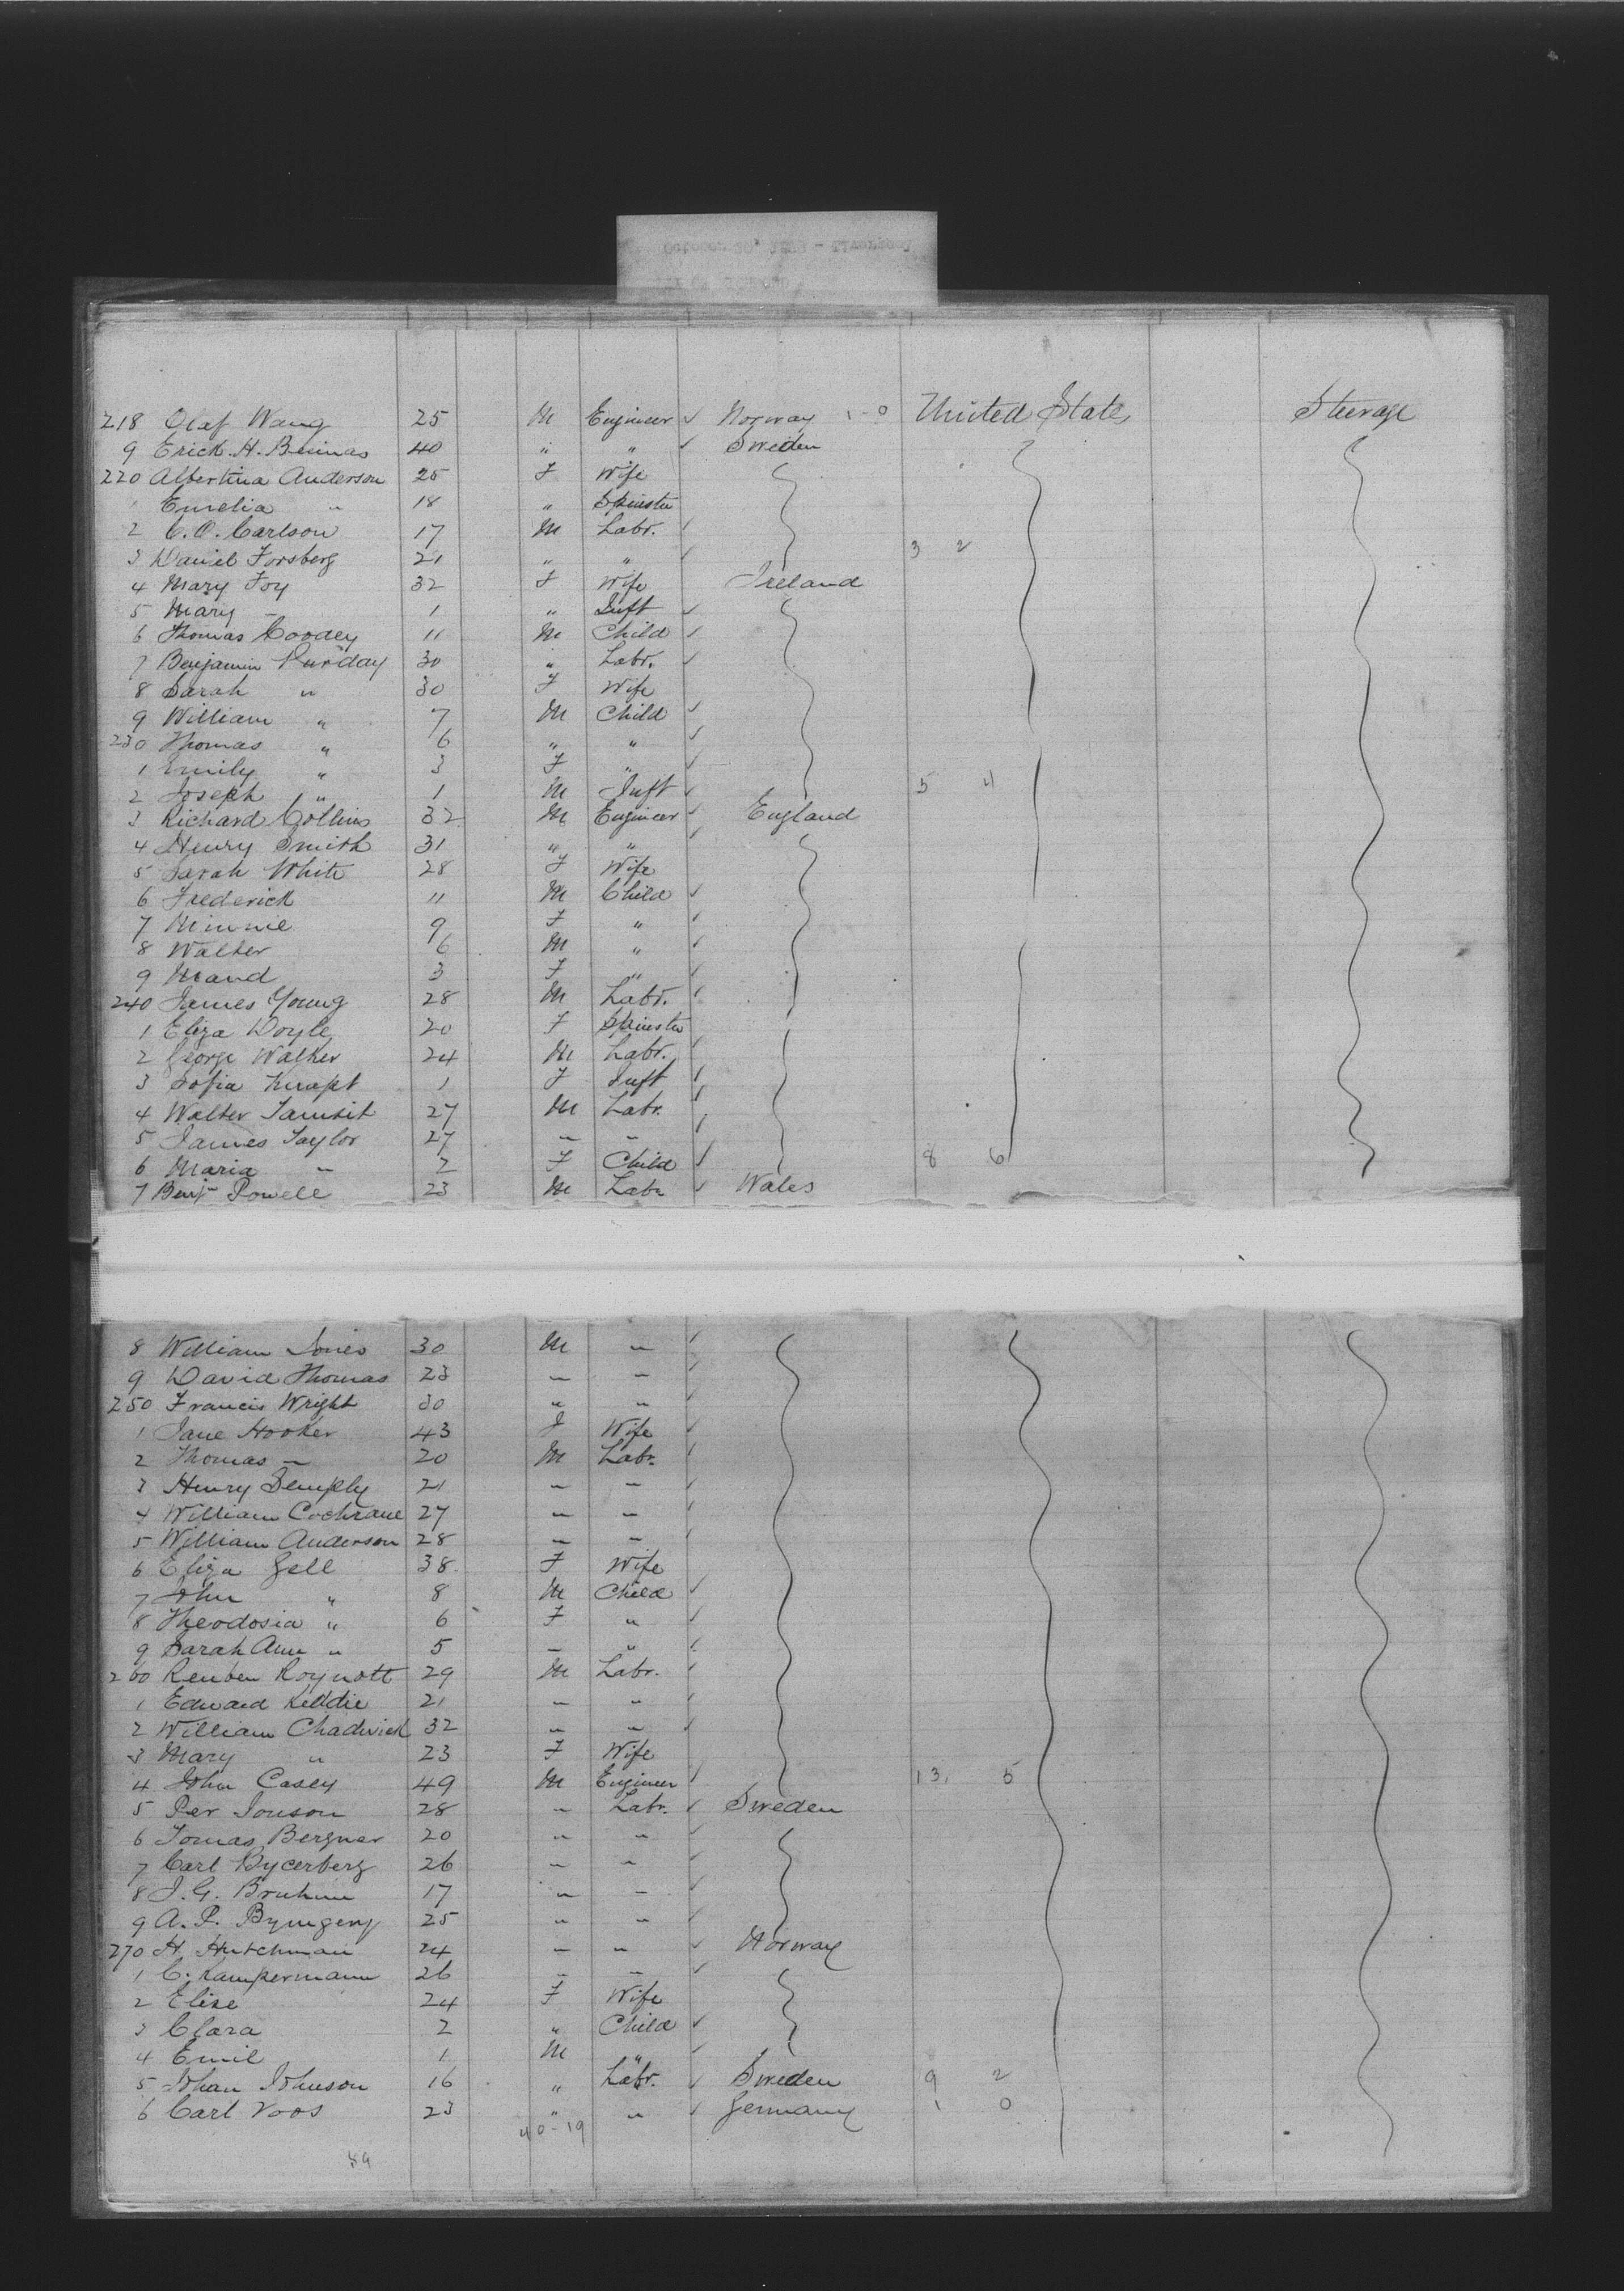 218 Olaf Wang 25 M Engineer ✓ Norway 1-0 United State Steerage
9 Erick. H. 40 " " ✓ Sweden
220 Albertina Anderson 25 F Wife
1 Emelia " 18 " Spinster
2 C. O. Carlson 17 M Labr. ✓
3 Daniel Forsberg 21 " " ✓ 3 2
4 Mary Foy 32 F Wife Ireland
5 Mary - 1 " Inft ✓
6 Thomas Coodey 11 M Child ✓
7 Benjamin Purday 30 " Labr. ✓
8 Sarah " 30 F Wife
9 William " 7 M Child ✓
230 Thomas " 6 " " ✓
1 Emily " 3 F " ✓
2 Joseph " 1 M Inft ✓ 5 4
3 Richard Collins 32 M Engineer ✓ England
4 Henry Smith 31 " " ✓
5 Sarah White 28 F Wife
6 Frederick 11 M Child ✓
7 Minnie 9 F " ✓
8 Walter 6 M " ✓
9 Maud 3 F " ✓
240 James Young 28 M Labr. ✓
1 Eliza Doyle 20 F Spinster
2 George Walker 24 M Labr. ✓
3 Sofia 1 F Inft ✓
4 Walter 27 M Labr. ✓
5 James Taylor 27 " " ✓
6 Maria " 2 F Child ✓ 8 6
7 Benj Powell 23 M Labr ✓ Wales
8 William Jones 30 M " ✓
9 David Thomas 23 " " ✓
250 Francis Wright 30 " " ✓
1 Jane Hooker 43 F Wife ✓
2 Thomas " 20 M Labr. ✓
3 Henry Semply 21 " " ✓
4 William Cochrane 27 " " ✓
5 William Anderson 28 " " ✓
6 Eliza Gell 38. F Wife
7 John " 8 M Child ✓
8 Theodosia " 6 F " ✓
9 Sarah Ann " 5 " " ✓
260 Reuben Roynott 29 M Labr. ✓
1 Edward Keddie 21 " " ✓
2 William Chadwick 32 " " ✓
3 Mary " 23 F Wife
4 John Casey 49 M Engineer ✓ 13, 5
5 Per Jonson 28 " Labr. ✓ Sweden
6 Tomas Bergner 20 " " ✓
7 Carl Bycerberg 26 " " ✓
8 J. G. 17 " " ✓
9 A. P. 25 " " ✓
270 H. Hutchman 24 " " ✓ Norway
1 C. Kampermann 26 " " ✓
2 Elise 24 F Wife
3 Clara 2 " Child ✓
4 Emil 1 M " ✓
5 Johan Johnson 16 " Labr. ✓ Sweden 9 2
6 Carl Voos 23 " " ✓ Germany 1 0
40-19
59